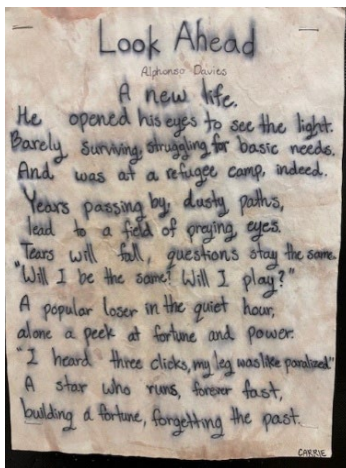 Look Ahead
Alphonso Davies
A new life.
He opened his eyes to see the light.
Barely surviving, struggling for basic needs.
And was at a refugee camp, indeed.
Years passing by, dusty paths,
lead to a field of preying, eyes.
Tears will fall, questions stay the same.
"Will I be the same? Will I play?"
A popular loser in the quiet hour,
alone a peek at fortune and power.
"I heard three clicks, my leg was like paralized"
A star who runs, forever fast,
building a fortune, forgetting the past.
CARRIE